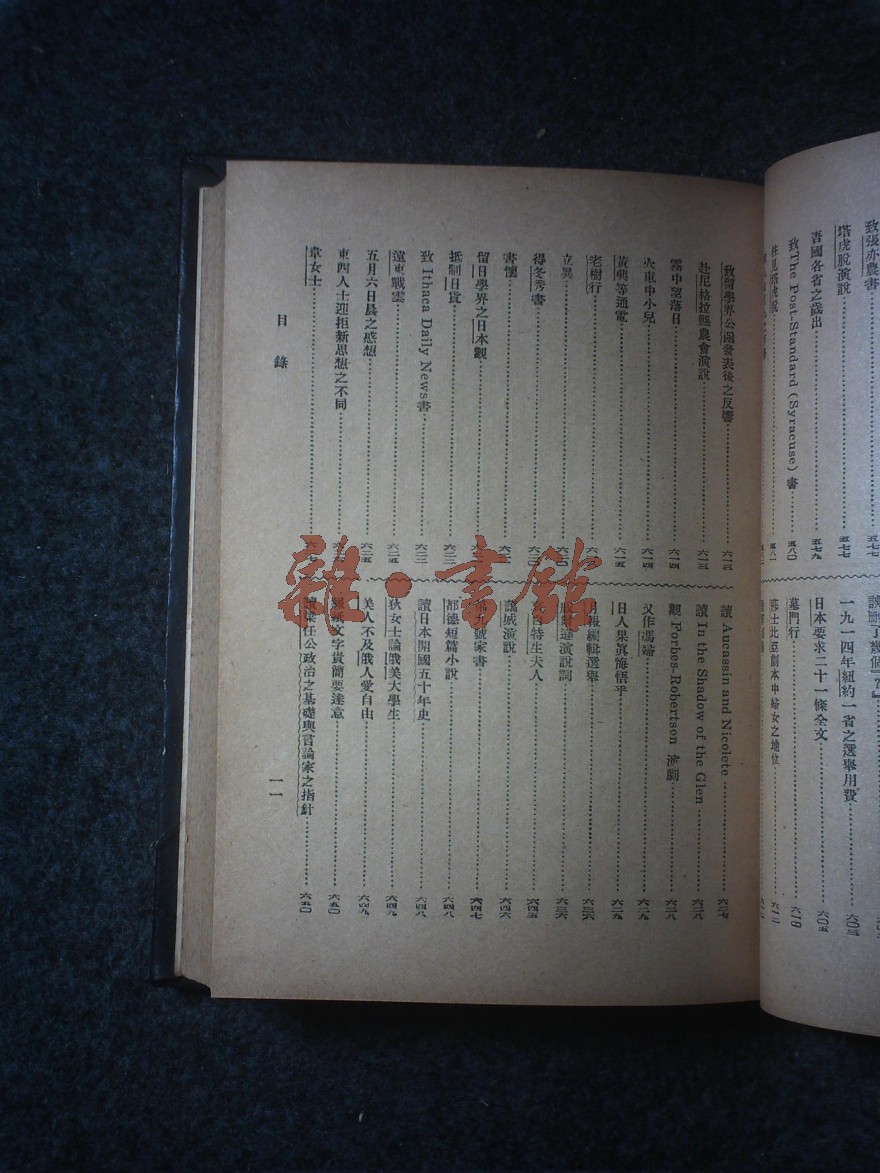 致張亦農書……五七七
塔虎脫演說……五七七
吾國各省之歲出……五七九
致The Post-Standard (Syracuse) 書……五八〇
一九一四年紐約一省之選舉用費……六〇三
日本要求二十一條全文……六〇五
墓門行
莎士比亞劇本中婦女之地位……六一二
致留學界公函發表後之反響
赴尼格拉縣農會演說……六一三
霧中望落日……六一四
火車中小兒……六一四
黃興等通電……六一五
老樹行
立異
得冬秀書
書懷
留日學界之日本觀
抵制日貨……六二三
致 Ithaca Daily News書……六二三
遠東戰雲……六二五
五月六日晨之感想……六二五
東西人士迎拒新思想之不同
韋女士
讀 Aucassin and Nicolete……六二七
讀 In the Shadow of the Glen……六二八
觀 Forbes-Robertson 演劇……六二八
又作馮婦……六二九
日人果真悔悟乎……六二九
月報編輯選舉……六三六
演說詞……六三六
特生夫人……六四五
城演說……六四六
第九號家書……六四七
都德短篇小說……六四八
讀日本開國五十年史……六四八
狄女士論俄美大學生……六四九
美人不及俄人愛自由……六四九
報紙文字貴簡要達意……六五〇
讀梁任公政治之基礎與言論家之指針……六五〇
目錄
一一
雜·書館